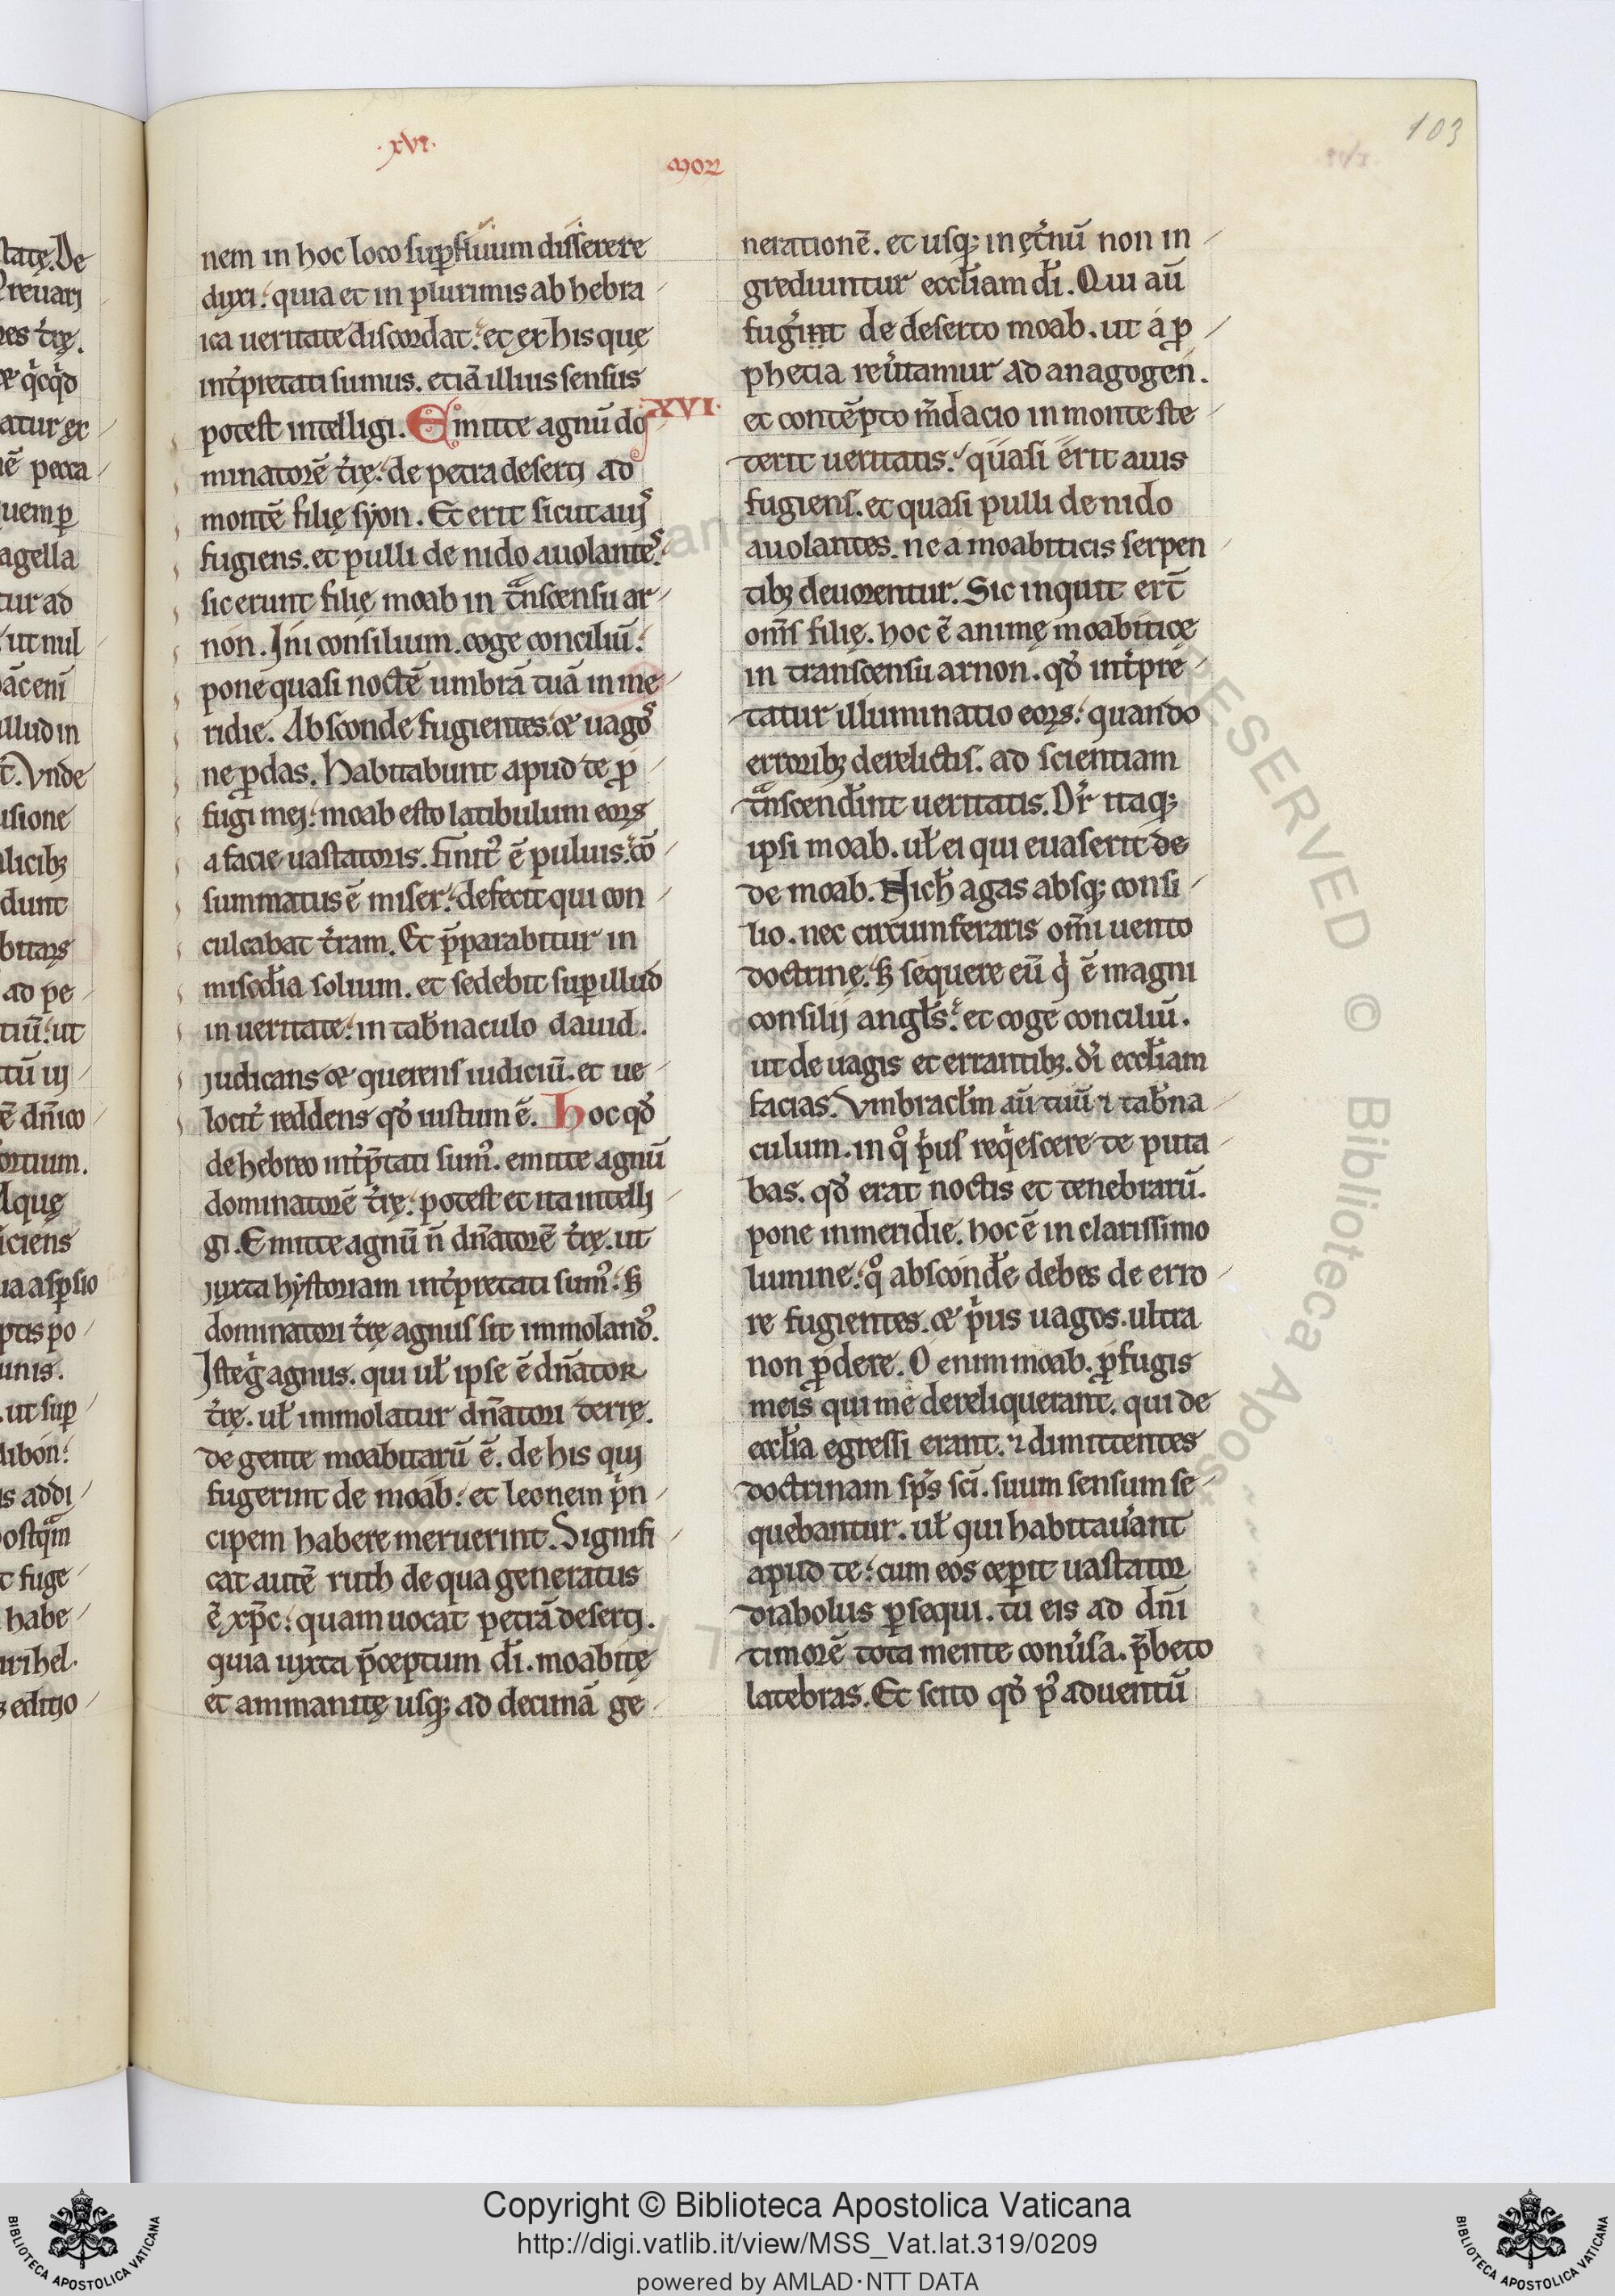 103
·xvi·
nem in hoc loco suꝑfluum disserere
duxi. quia et in plurimis ab hebra
ica ueritate discordat. et ex his quę
int̓pretati sumus. etiā illius sensus
potest intelligi. Emitte agnū do
XVI.
minatorē t̓rę. de petra deserti ad
montē filię syon. Et erit sicut auis
fugiens. et pulli de nido auolantes.
sic erunt filię moab in tͣnscensu ar
non. Ini consilium. coge conciliū.
pone quasi noctē umbrā tuā in me
ridie. Absconde fugientes. & uagos
ne ꝑdas. Habitabunt apud te ꝓ
fugi mei. moab esto latibulum eoꝝ
a facie uastatoris. finit᷒ ē puluis. cō
summatus ē miser. defecit qui con
culcabat t̓ram. Et p̄parabitur in
mīscd̓ia solium. et sedebit suꝑ illud
in ueritate. in tab̓naculo dauid.
iudicans & querens iudiciū. et ue
locit̓ reddens qđ iustum ē. Hoc qđ
de hebreo int̓p̄tati sum᷒. emitte agnū
dominatorē t̓rę. potest et ita intelli
gi. Emitte agnū n̄ dn̄atorē t̓rę. ut
iuxta hystoriam int̓pretati sum᷒. sꝫ
dominatori t̓rę agnus sit immoland᷒.
Iste gͥ agnus. qui uł ipse ē dn̄ator
t̓rę. uł immolatur dn̄atori terrę.
de gente moabitarū ē. de his qui
fugerint de moab. et leonem pͥn
cipem habere meruerint. Signifi
cat autē ruth de qua generatus
ē xp̄c. quam uocat petrā deserti.
quia iuxta p̄ceptum di̅. moabitę
et ammanitę usqꝫ ad decimā ge
neratiōnē. et usqꝫ in ęt̓nū non in
grediuntur eccl̓iam di̅. Qui aū
fug̓int de deserto moab. ut a ꝓ
phetia reu̓tamur ad anagogen.
et contēpto m̄dacio in monte ste
terit ueritatis. quasi erit auis
fugiens. et quasi pulli de nido
auolantes. ne a moabiticis serpen
tibꝫ deuorentur. Sic inquit er̄t
om̄s filię. hoc ē animę moabiticę
in transcensu arnon. qđ int̓pre
tatur illuminatio eoꝝ. quando
erroribꝫ derelictis. ad scientiam
tͣnscend̓int ueritatis. Dr̓ itaqꝫ
ipsi moab. uł ei qui euaserit de
de moab. Nich̓ agas absqꝫ consi
lio. nec circumferaris om̄i uento
doctrinę. sꝫ sequere eū qͥ ē magni
consilij angl̓s. et coge conciliū.
ut de uagis et errantibꝫ. d̓i eccl̓iam
facias. Vmbracl̓m aū tuū ⁊ tab̓na
culum. in qͦ pͥus reqͥescere te puta
bas. qđ erat noctis et tenebrarū.
pone in meridie. hoc ē in clarissimo
lumine. qͦ absconde̓ debes de erro
re fugientes. & pͥus uagos. ultra
non ꝑdere. O enim moab. ꝓfugis
meis qui me dereliquerant. qui de
eccl̓ia egressi erant. ⁊ dimittentes
doctrinam sp̄s sc̄i. suum sensum se
quebantur. uł qui habitau̓ant
apud te. cum eos cep̓it uastator
diabolus ꝑsequi. tu eis ad dn̄i
timorē tota mente conu̓sa. p̄beto
latebras. Et scito qđ p᷒ aduentū
Copyright © Biblioteca Apostolica Vaticana
http://digi.vatlib.it/view/MSS_Vat.lat.319/0209
powered by AMLAD·NTT DATA